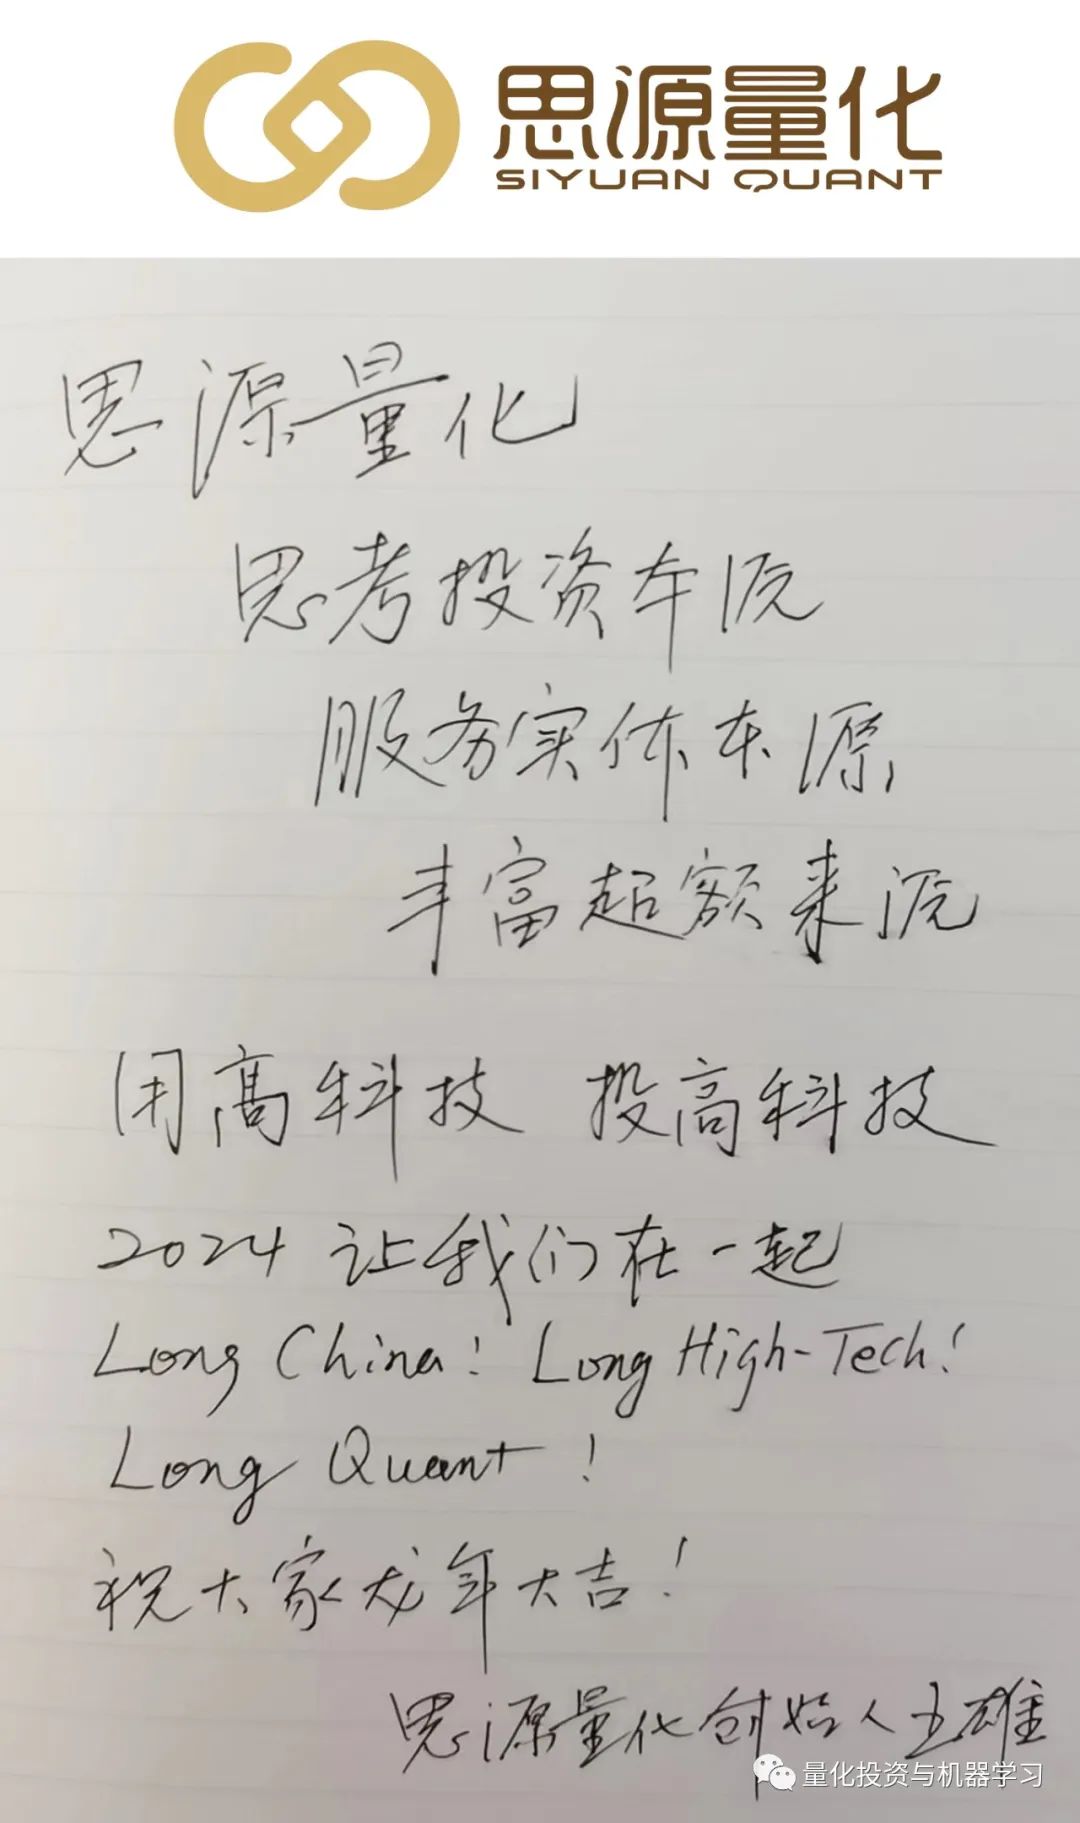 思源量化
SIYUAN QUANT
思源量化
思考投资本源
服务实体本源
丰富超额来源
用高科技 投高科技
2024 让我们在一起
Long China! Long High-Tech!
Long Quant!
祝大家龙年大吉!
思源量化创始人王雄
量化投资与机器学习